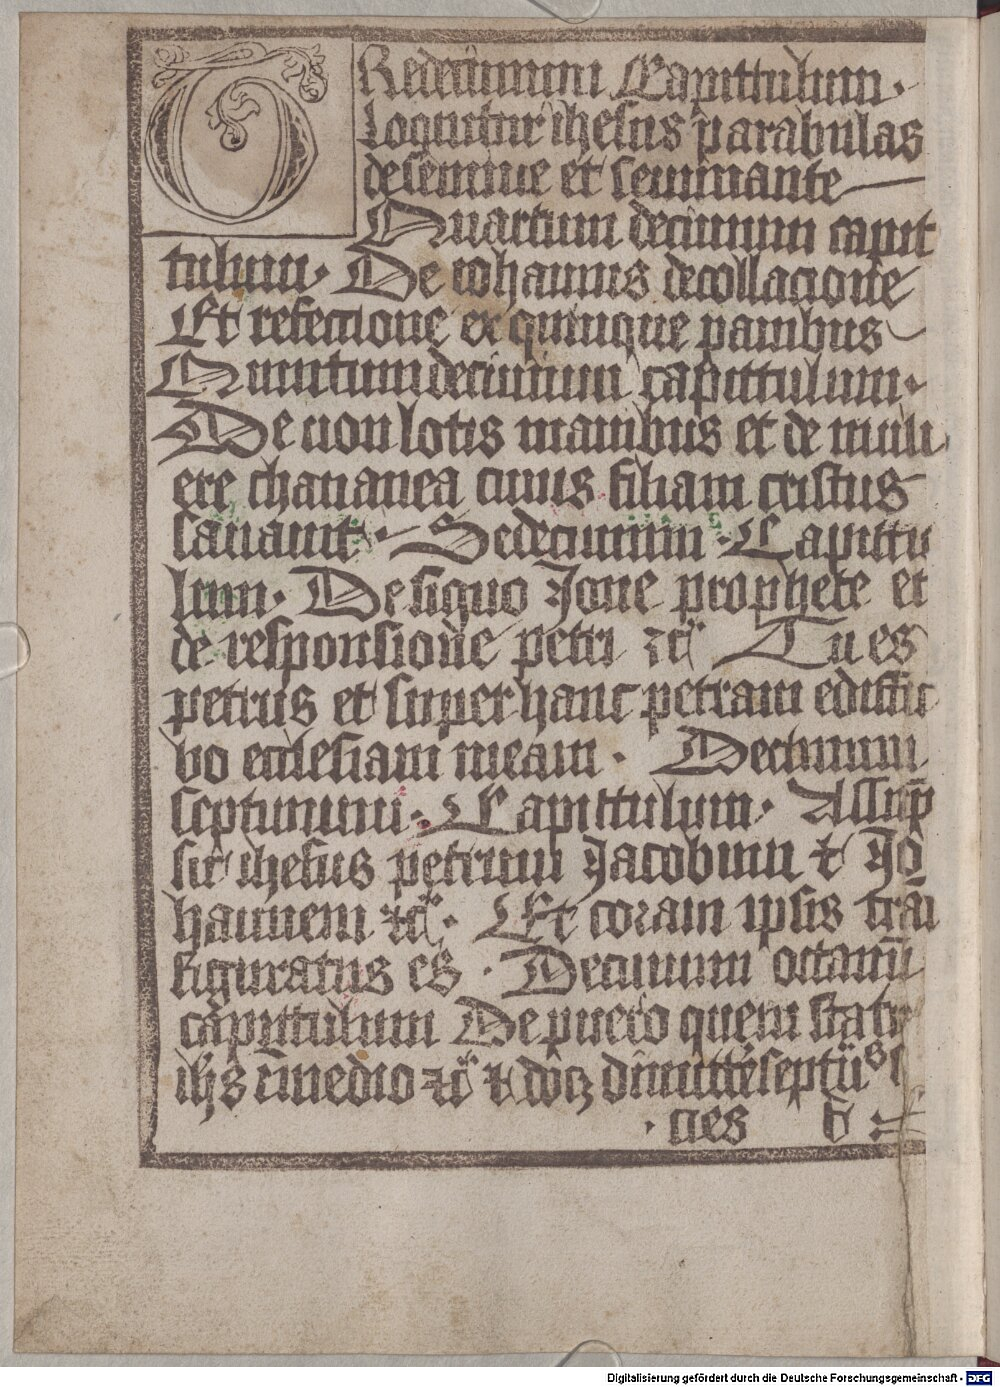 TRedecimum Capittulum ·
Loquitur ihesus parabulas
de semine et seminante
Quartum decimum capit
tulum · De iohannis decollacione
Et refectione ex quinque panibus
Quintum decimum capittulum ·
De non lotis manibus et de muli
ere chananea cuius filiam cristus
sanauit · Sedecimum · Capittu
lum · De signo Jone prophete et
de responsione petri ꝛcͣ Tu es
petrus et super hanc petram ediffic
bo ecclesiam meam · Decimum
septimum · Capittulum · Assūp
sit ihesus petrum Jacobum ⁊ Jo
hannem ꝛcͣ · Et coram ipsis trās
figuratus es · Decimum octauū
capittulum De puero quem statu
ihs ī medio ꝛcͣ ⁊ dimitte septūs
· cies b
Digitalisierung gefördert durch die Deutsche Forschungsgemeinschaft - DFG